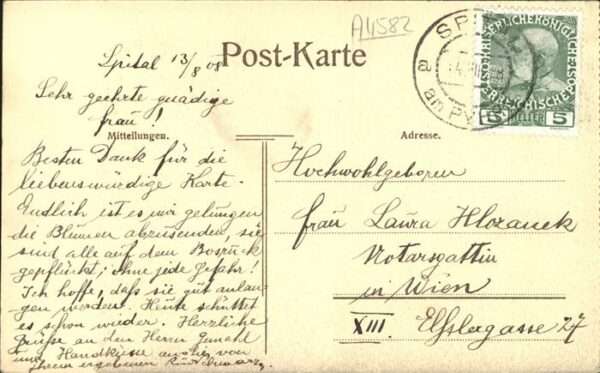 A4582
Post-Karte
Spital 13/8 08
Sehr geehrte gnädige
Frau!
Mitteilungen.
Besten Dank für die
liebenswürdige Karte.
Endlich ist es mir gelungen
die Blumen abzusenden, sie
sind alle auf dem Bosruck
gepflückt; ohne jede Gefahr!
Ich hoffe, daß sie gut anlan-
gen werden. Heute schüttet
es schon wieder. Herzliche
Grüße an den Herrn Gemahl
und Handküsse an Sie von
Ihrem ergebenen
Adresse.
Hochwohlgeboren
Frau Laura Hlozanek
Notarsgattin
in Wien
XIII. Elßlergasse 27
SP
a
am PY
5 HELLER 5